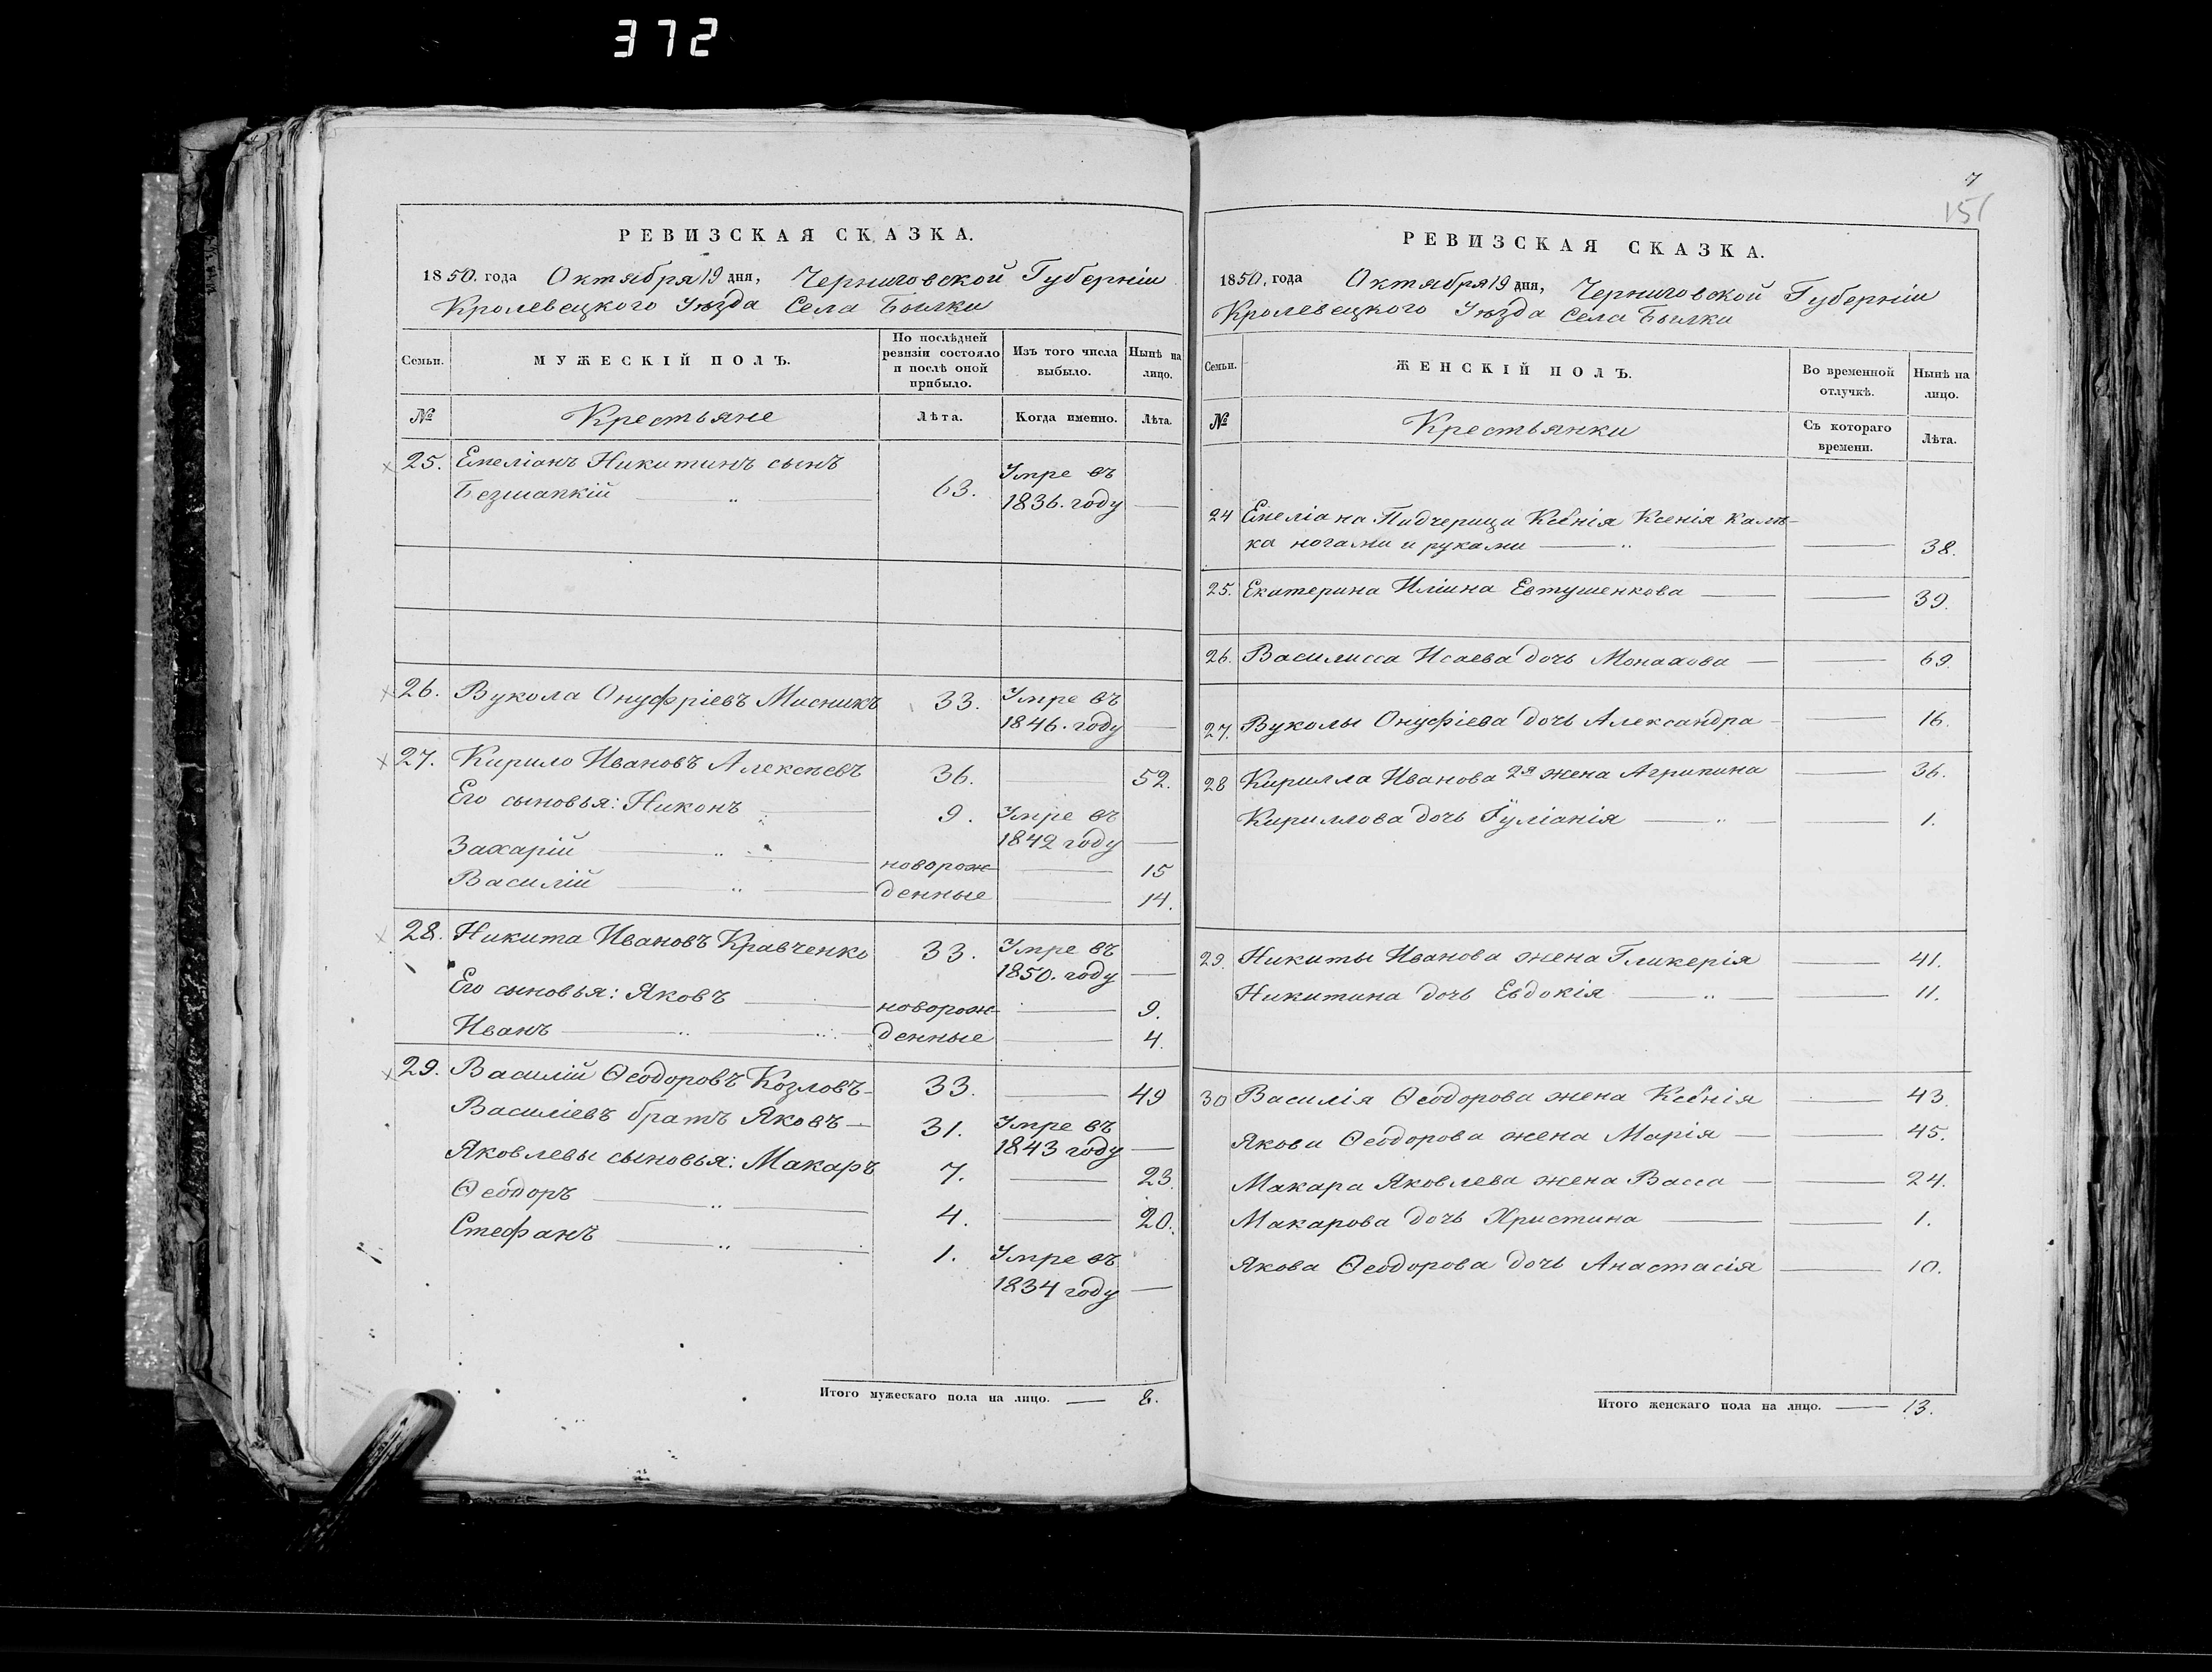 372
РЕВИЗСКАЯ СКАЗКА.
1850. года Октября 19 дня, Черниговской Губерніи
Кролевецкого Уѣзда Села Былки
Семьи.
МУЖЕСКІЙ ПОЛЪ.
По послѣдней
ревизіи состояло
и послѣ оной
прибыло.
Изъ того числа
выбыло.
Нынѣ на
лицо.
№
Крестьяне
Лѣта.
Когда именно.
Лѣта.
25. Емеліанъ Никитинъ сынъ
Безшапкій 63. Умре въ
1836. году
26. Вукола Онуфріевъ Мисникъ 33. Умре въ
1846. году
27. Кирило Ивановъ Алексѣевъ 36. 52.
Его сыновья: Никонъ 9. Умре въ
1842 году
Захарій новорож- 15
Василій денные 14.
28. Никита Ивановъ Кравченко 33. Умре въ
1850. году
Его сыновья: Яковъ новорож- 9.
Иванъ денные 4.
29. Василій Ѳеодоровъ Козловъ 33. 49
Василіевъ братъ Яковъ 31. Умре въ
1843 году
Яковлевы сыновья: Макаръ 7. 23.
Ѳеодоръ 4. 20.
Стефанъ 1. Умре въ
1834 году
Итого мужескаго пола на лицо. 8.
7
151
РЕВИЗСКАЯ СКАЗКА.
1850, года Октября 19 дня, Черниговской Губерніи
Кролевецкого Уѣзда Села Былки
Семьи.
ЖЕНСКІЙ ПОЛЪ.
Во временной
отлучкѣ.
Нынѣ на
лицо.
№
Крестьянки
Съ котораго
времени.
Лѣта.
24 Емеліана Пидчерици Ксенія Ксенія калѣ-
ка ногами и руками 38.
25. Екатерина Иліина Евтушенкова 39.
26. Василисса Исаева дочь Монахова 69.
27. Вуколы Онуфіева дочь Александра 16.
28 Кирилла Иванова 2я жена Агрипина 36.
Кириллова дочь Іуліанія 1.
29. Никиты Иванова жена Гликерія 41.
Никитина дочь Евдокія 11.
30 Василія Ѳеодорова жена Ксенія 43.
Якова Ѳеодорова жена Марія 45.
Макара Яковлева жена Васса 24.
Макарова дочь Христина 1.
Якова Ѳеодорова дочь Анастасія 10.
Итого женскаго пола на лицо. 13.